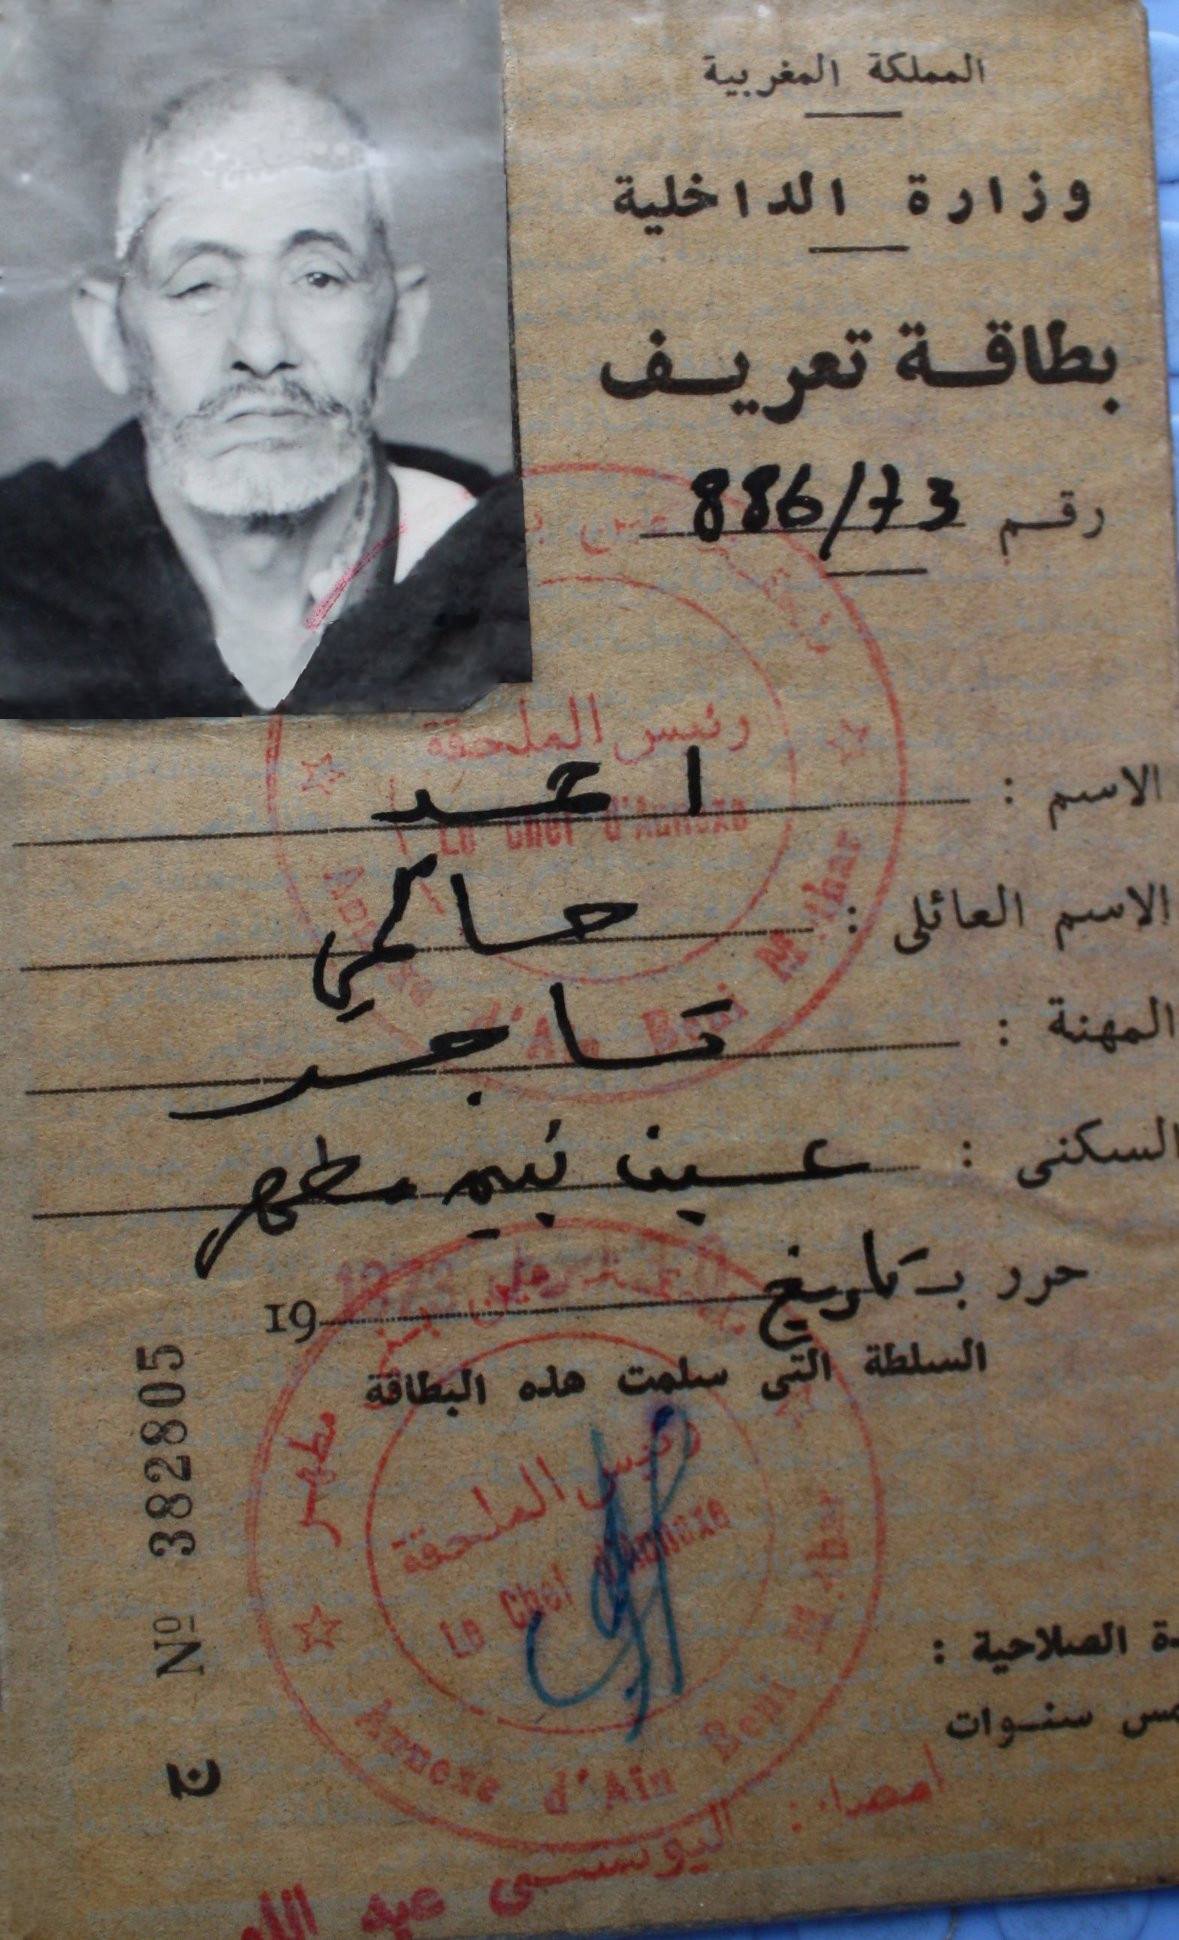 المملكة المغربية
وزارة الداخلية
بطاقة تعريف
رقم 886/73
الاسم : احمد
الاسم العائلى : حاكمي
المهنة : تاجر
السكنى : عين بني مطهر
حرر بـ تاريخ 19
السلطة التى سلمت هذه البطاقة
رئيس الملحقة
Le Chef d'Annexe
Annexe d'Ain Beni M.thar
رئيس الملحقة
Le Chef d'Annexe
Annexe d'Ain Beni M.thar
مطهر
Nº 382805
ج
ـدة الصلاحية :
ـمس سنوات
امضاء : اليوسفى عبد الله